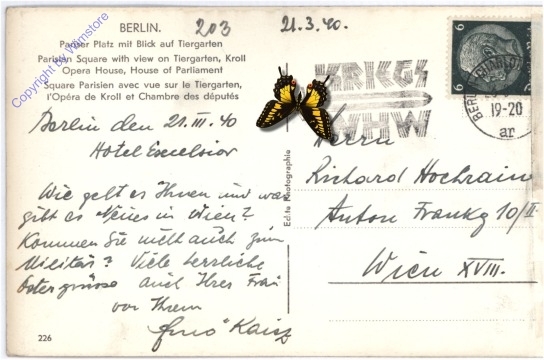 BERLIN.
Pariser Platz mit Blick auf Tiergarten
Parisien Square with view on Tiergarten, Kroll
Opera House, House of Parliament
Square Parisien avec vue sur le Tiergarten,
l'Opéra de Kroll et Chambre des députés
203
21.3.40.
Copyright by Vollmstore
Berlin den 21.III.40
Hotel Excelsior
Wie geht es Ihnen und was
gibt es Neues in Wien?
Kommen Sie nicht auch zum
Militär? Viele herzliche
Ostergrüsse auch Ihrer Frau
von Ihrem
226
Echte Photographie
KRIEGS
WHW
6
6
BERLIN
19-20
ar
Herrn
Richard Hochrain
Anton 10/II
Wien XVIII.